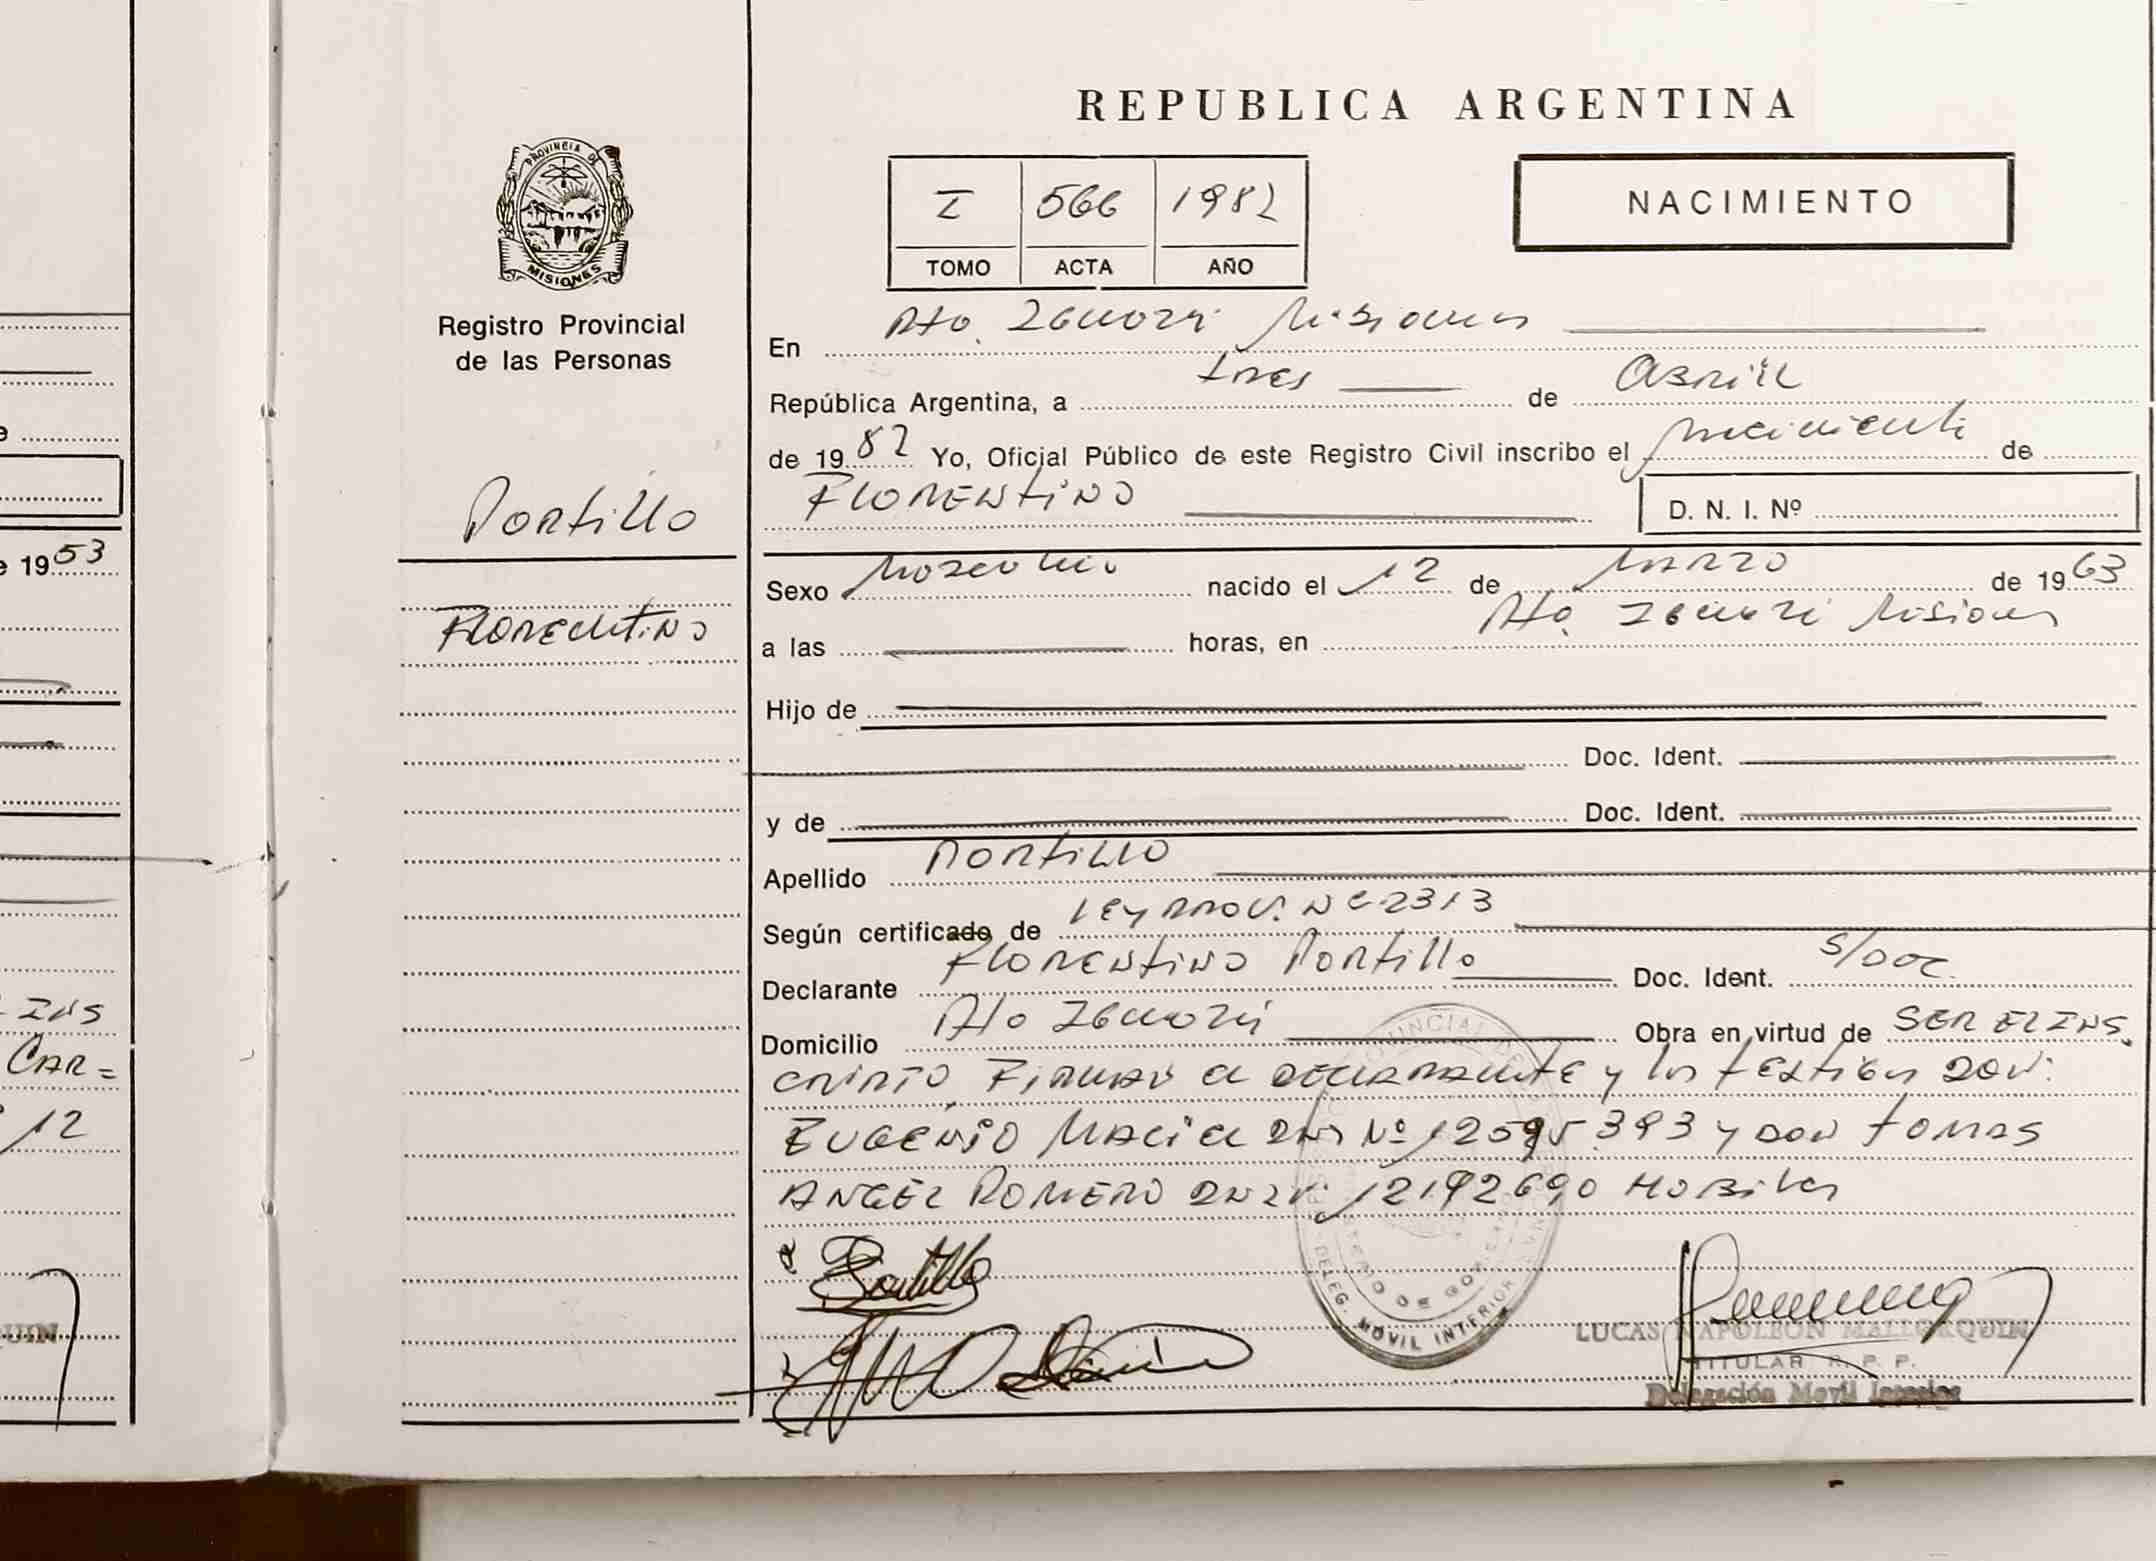 e
e 19 53
INS
CAR=
12
QUIN
PROVINCIA DE
MISIONES
Registro Provincial
de las Personas
Portillo
Florentino
REPUBLICA ARGENTINA
I 566 1982
TOMO ACTA AÑO
NACIMIENTO
En Pto. Iguazú Misiones
República Argentina, a tres de Abril
de 1982 Yo, Oficial Público de este Registro Civil inscribo el nacimiento de
Florentino
D. N. I. Nº
Sexo Masculino nacido el 12 de Marzo de 1963
a las horas, en Pto. Iguazú Misiones
Hijo de
Doc. Ident.
y de Doc. Ident.
Apellido Portillo
Según certificado de Ley Prov. Nº 2313
Declarante Florentino Portillo Doc. Ident. S/Doc.
Domicilio Pto Iguazú Obra en virtud de SER REINS
CRIPTO Firman el declarante y los testigos Don:
EUGENIO Maciel DNI Nº 12595.393 y DON TOMAS
ANGEL ROMERO DNI Nº 12192690 Habiles
Portillo
DELEG. MOVIL INTERIOR
LUCAS NAPOLEON MALLORQUIN
TITULAR R. P. P.
Delegación Movil Interior